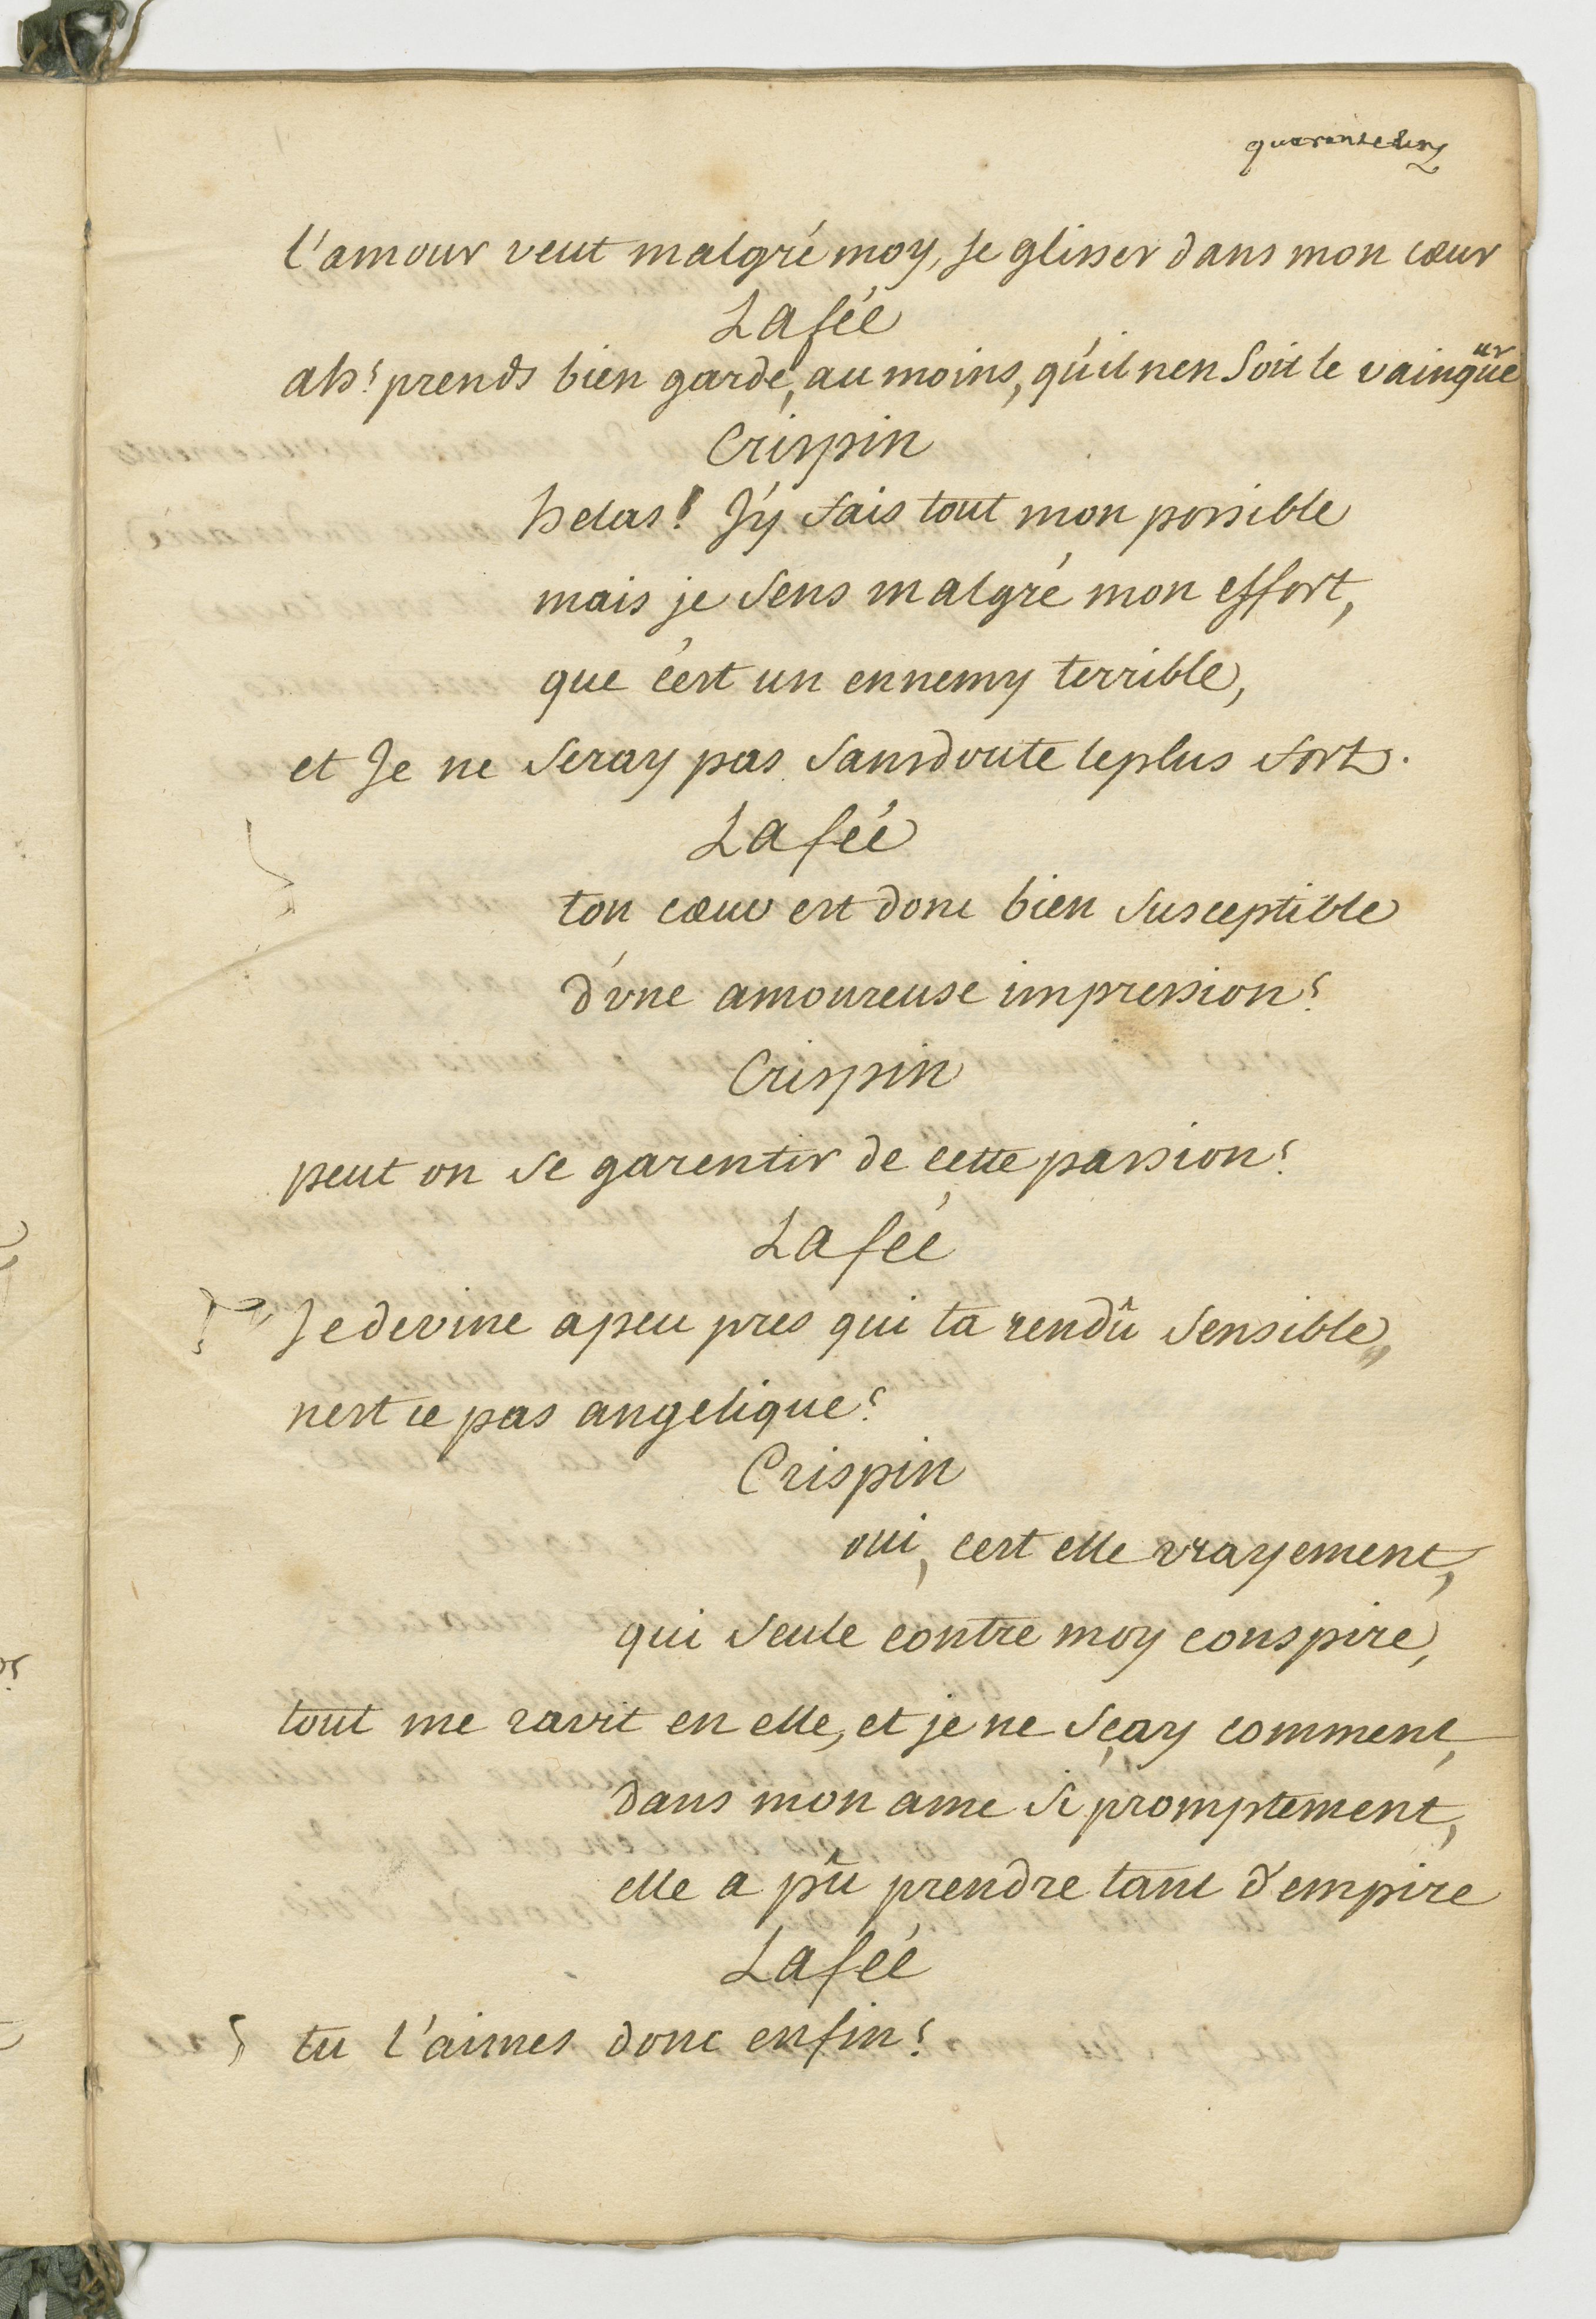 quarante & un
l'amour veut malgré moy, se glisser dans mon cœur
La fée
ah! prends bien garde, au moins, qu'il nen soit le vainqueur
Crispin
helas! J'y fais tout mon possible
mais je sens malgré mon effort,
que c'est un ennemy terrible,
et Je ne seray pas sans doute le plus fort.
La fée
ton cœur est donc bien susceptible
d'une amoureuse impression?
Crispin
peut on se garentir de cette passion?
La fée
Je devine a peu pres qui ta rendû sensible,
nest ce pas angelique?
Crispin
oui, cest elle vrayement,
qui seule contre moy conspire,
tout me ravit en elle, et je ne sçay comment,
dans mon ame si promptement,
elle a pû prendre tant d'empire
La fée
tu l'aimes donc enfin?